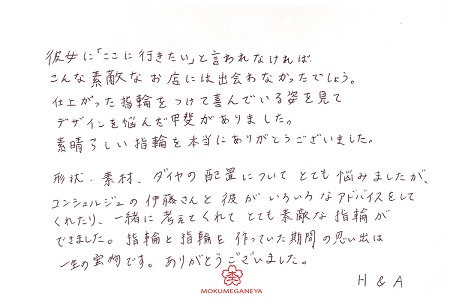 彼女に「ここに行きたい」と言われなければ
こんな素敵なお店には出会わなかったでしょう。
仕上がった指輪をつけて喜んでいる姿を見て
デザインを悩んだ甲斐がありました。
素晴らしい指輪を本当にありがとうございました。
形状、素材、ダイヤの配置についてとても悩みましたが、
コンシェルジュの伊藤さんと彼がいろいろなアドバイスをして
くれたり、一緒に考えてくれてとても素敵な指輪が
できました。指輪と指輪を作っていた期間の思い出は
一生の宝物です。ありがとうございました。
H & A
MOKUMEGANEYA